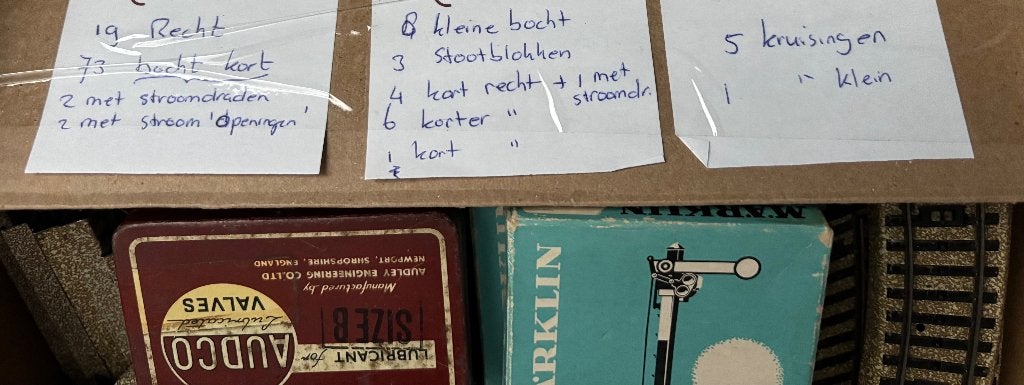 19 Recht
73 bocht kort
2 met stroomdraden
2 met stroom 'openingen'
8 kleine bocht
3 Stootblokken
4 kort recht + 1 met stroomdr.
6 korter "
1 kort "
5 kruisingen
1 " klein
MÄRKLIN
MÄRKLIN
LUBRICANT for
SIZE B
AUDCO
Lubricated
VALVES
Manufactured by
AUDLEY ENGINEERING CO.LTD
NEWPORT, SHROPSHIRE, ENGLAND